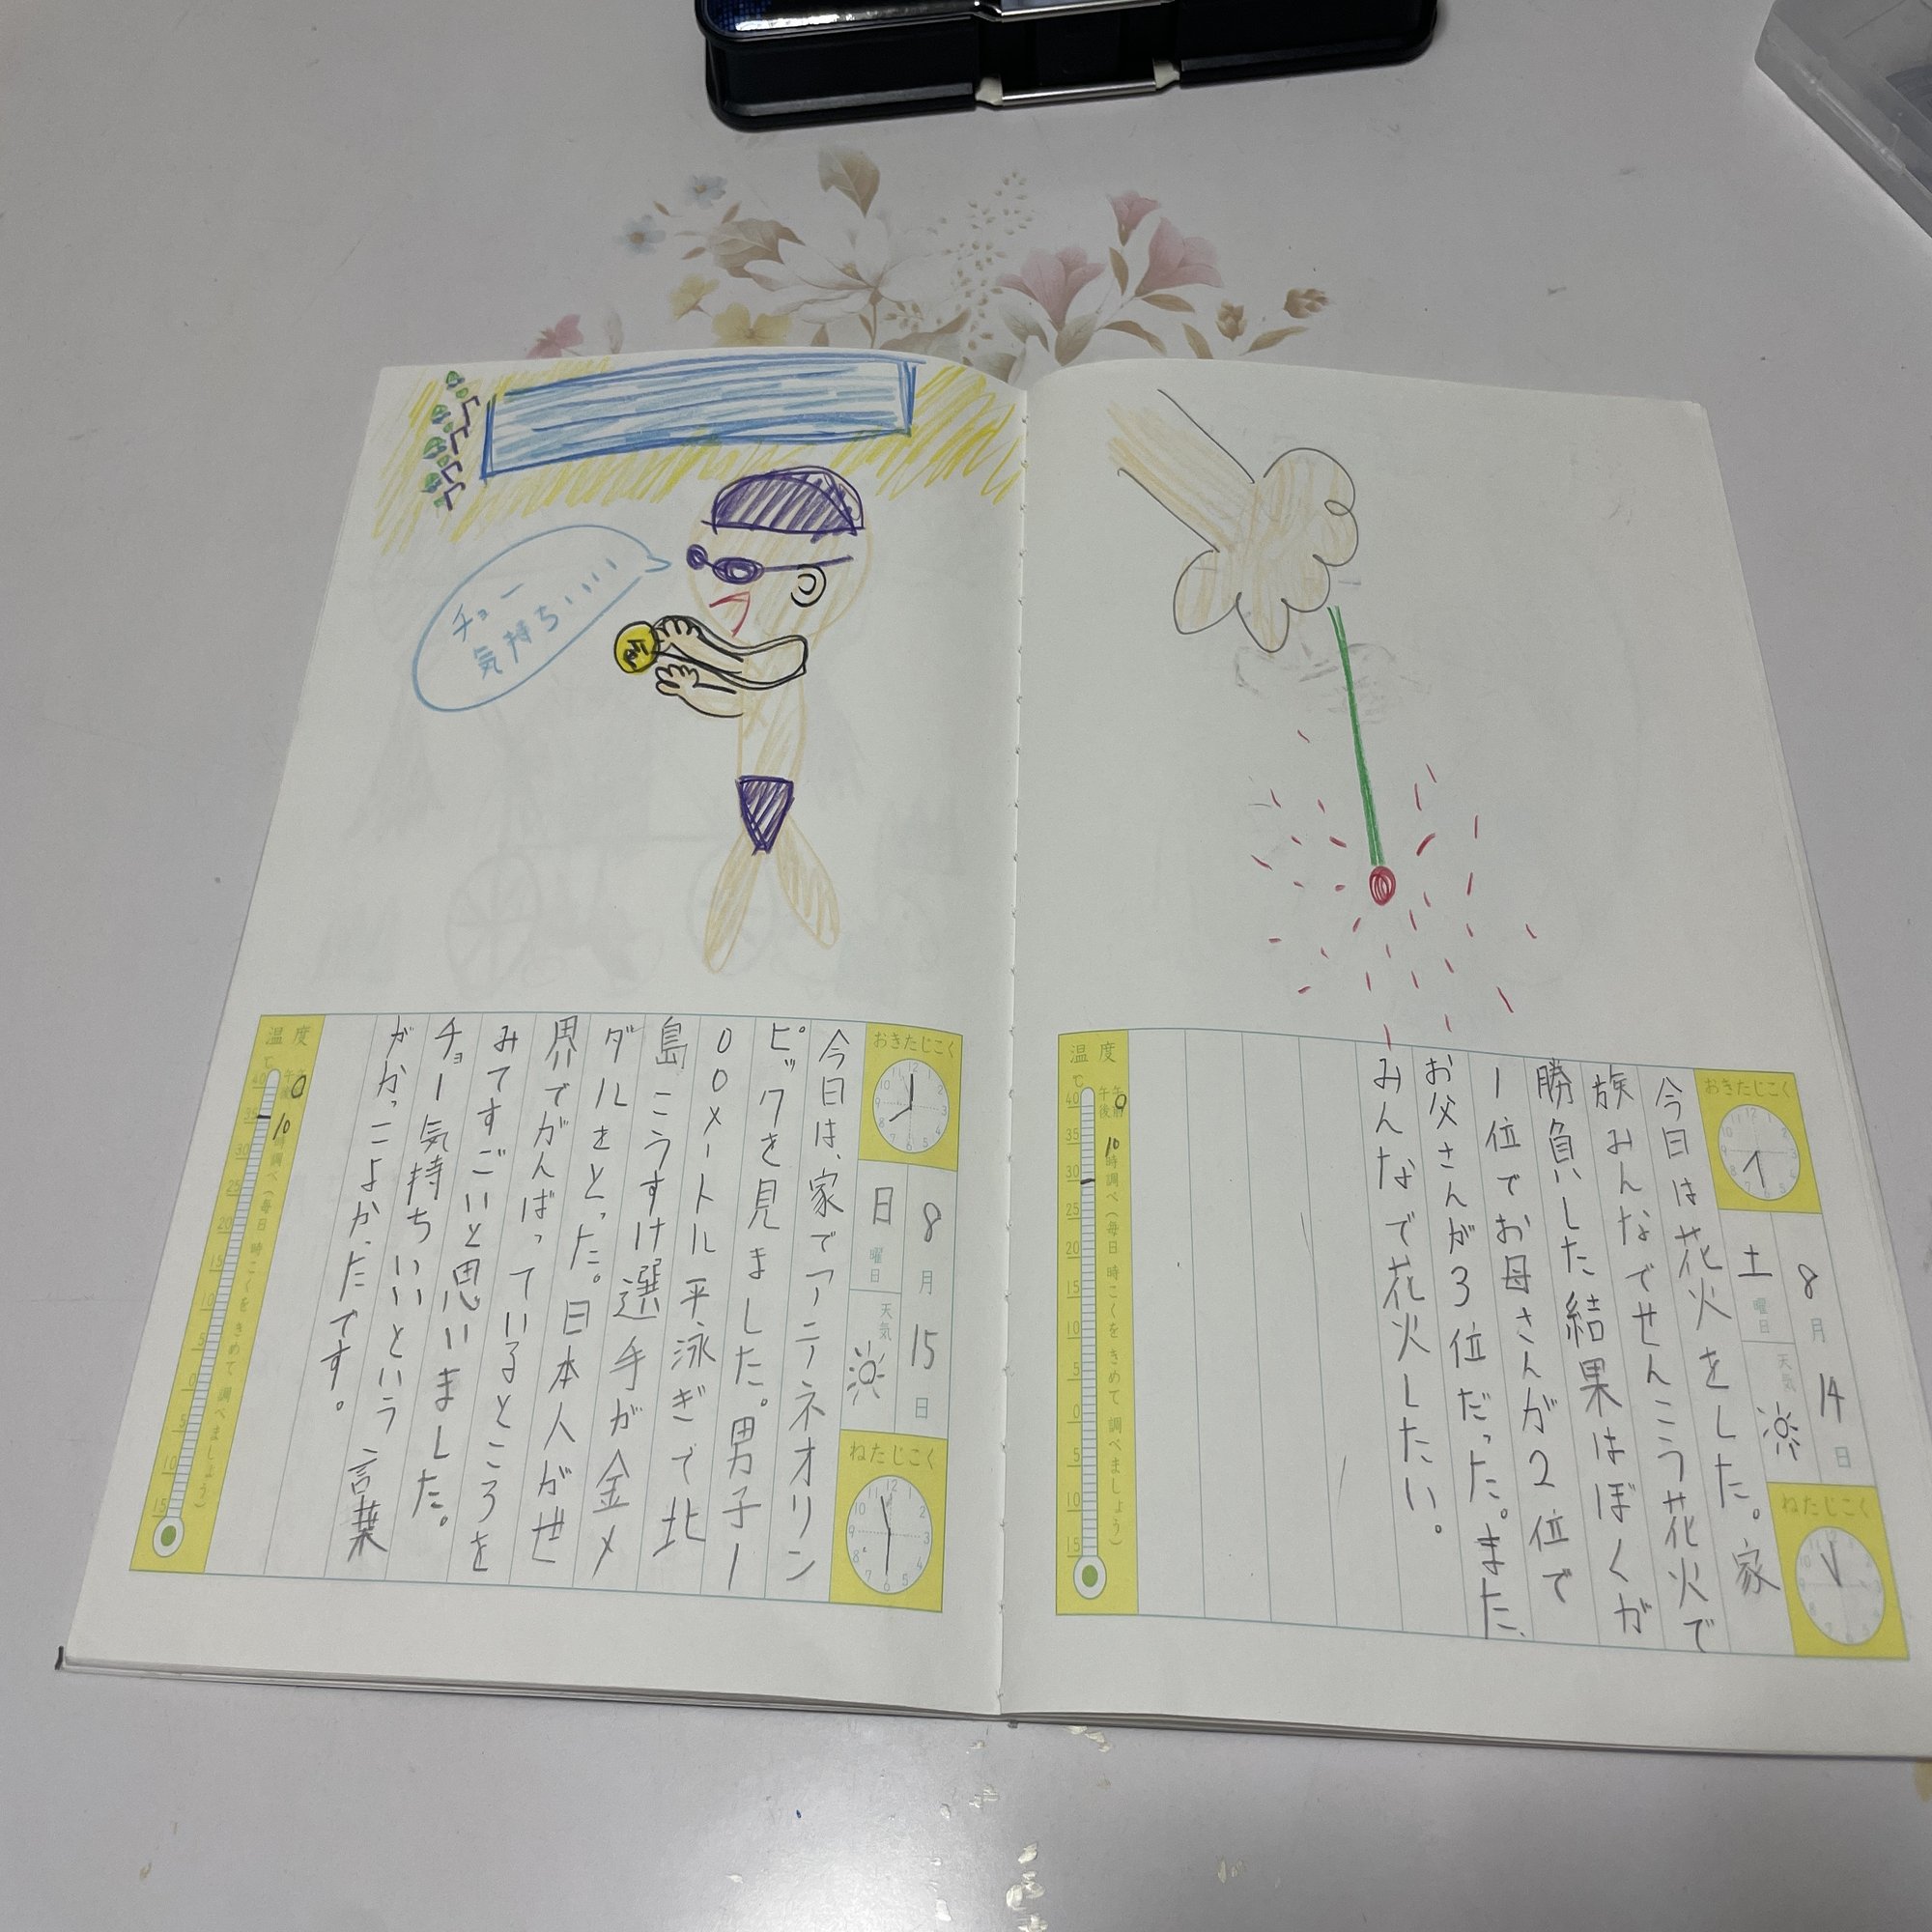 おきたじこく
8月14日
土曜日
天気
ねたじこく
今日は花火をした。家
族みんなでせんこう花火で
勝負した結果はぼくが
1位でお母さんが2位で
お父さんが3位だった。また、
みんなで花火したい。
温度
℃
午前
午後
10時調べ(毎日 時こくを きめて 調べましょう)
40
35
30
25
20
15
10
5
0
5
10
15
チョー
気持ちいいい
金
おきたじこく
8月15日
日曜日
天気
ねたじこく
今日は、家でアテネオリン
ピックを見ました。男子1
00メートル平泳ぎで北
島こうすけ選手が金メ
ダルをとった。日本人がせ
界でがんばっているところを
みてすごいと思いました。
チョー気持ちいいという言葉
がかっこよかったです。
温度
℃
午前
午後
10時調べ(毎日 時こくを きめて 調べましょう)
40
35
30
25
20
15
10
5
0
5
10
15